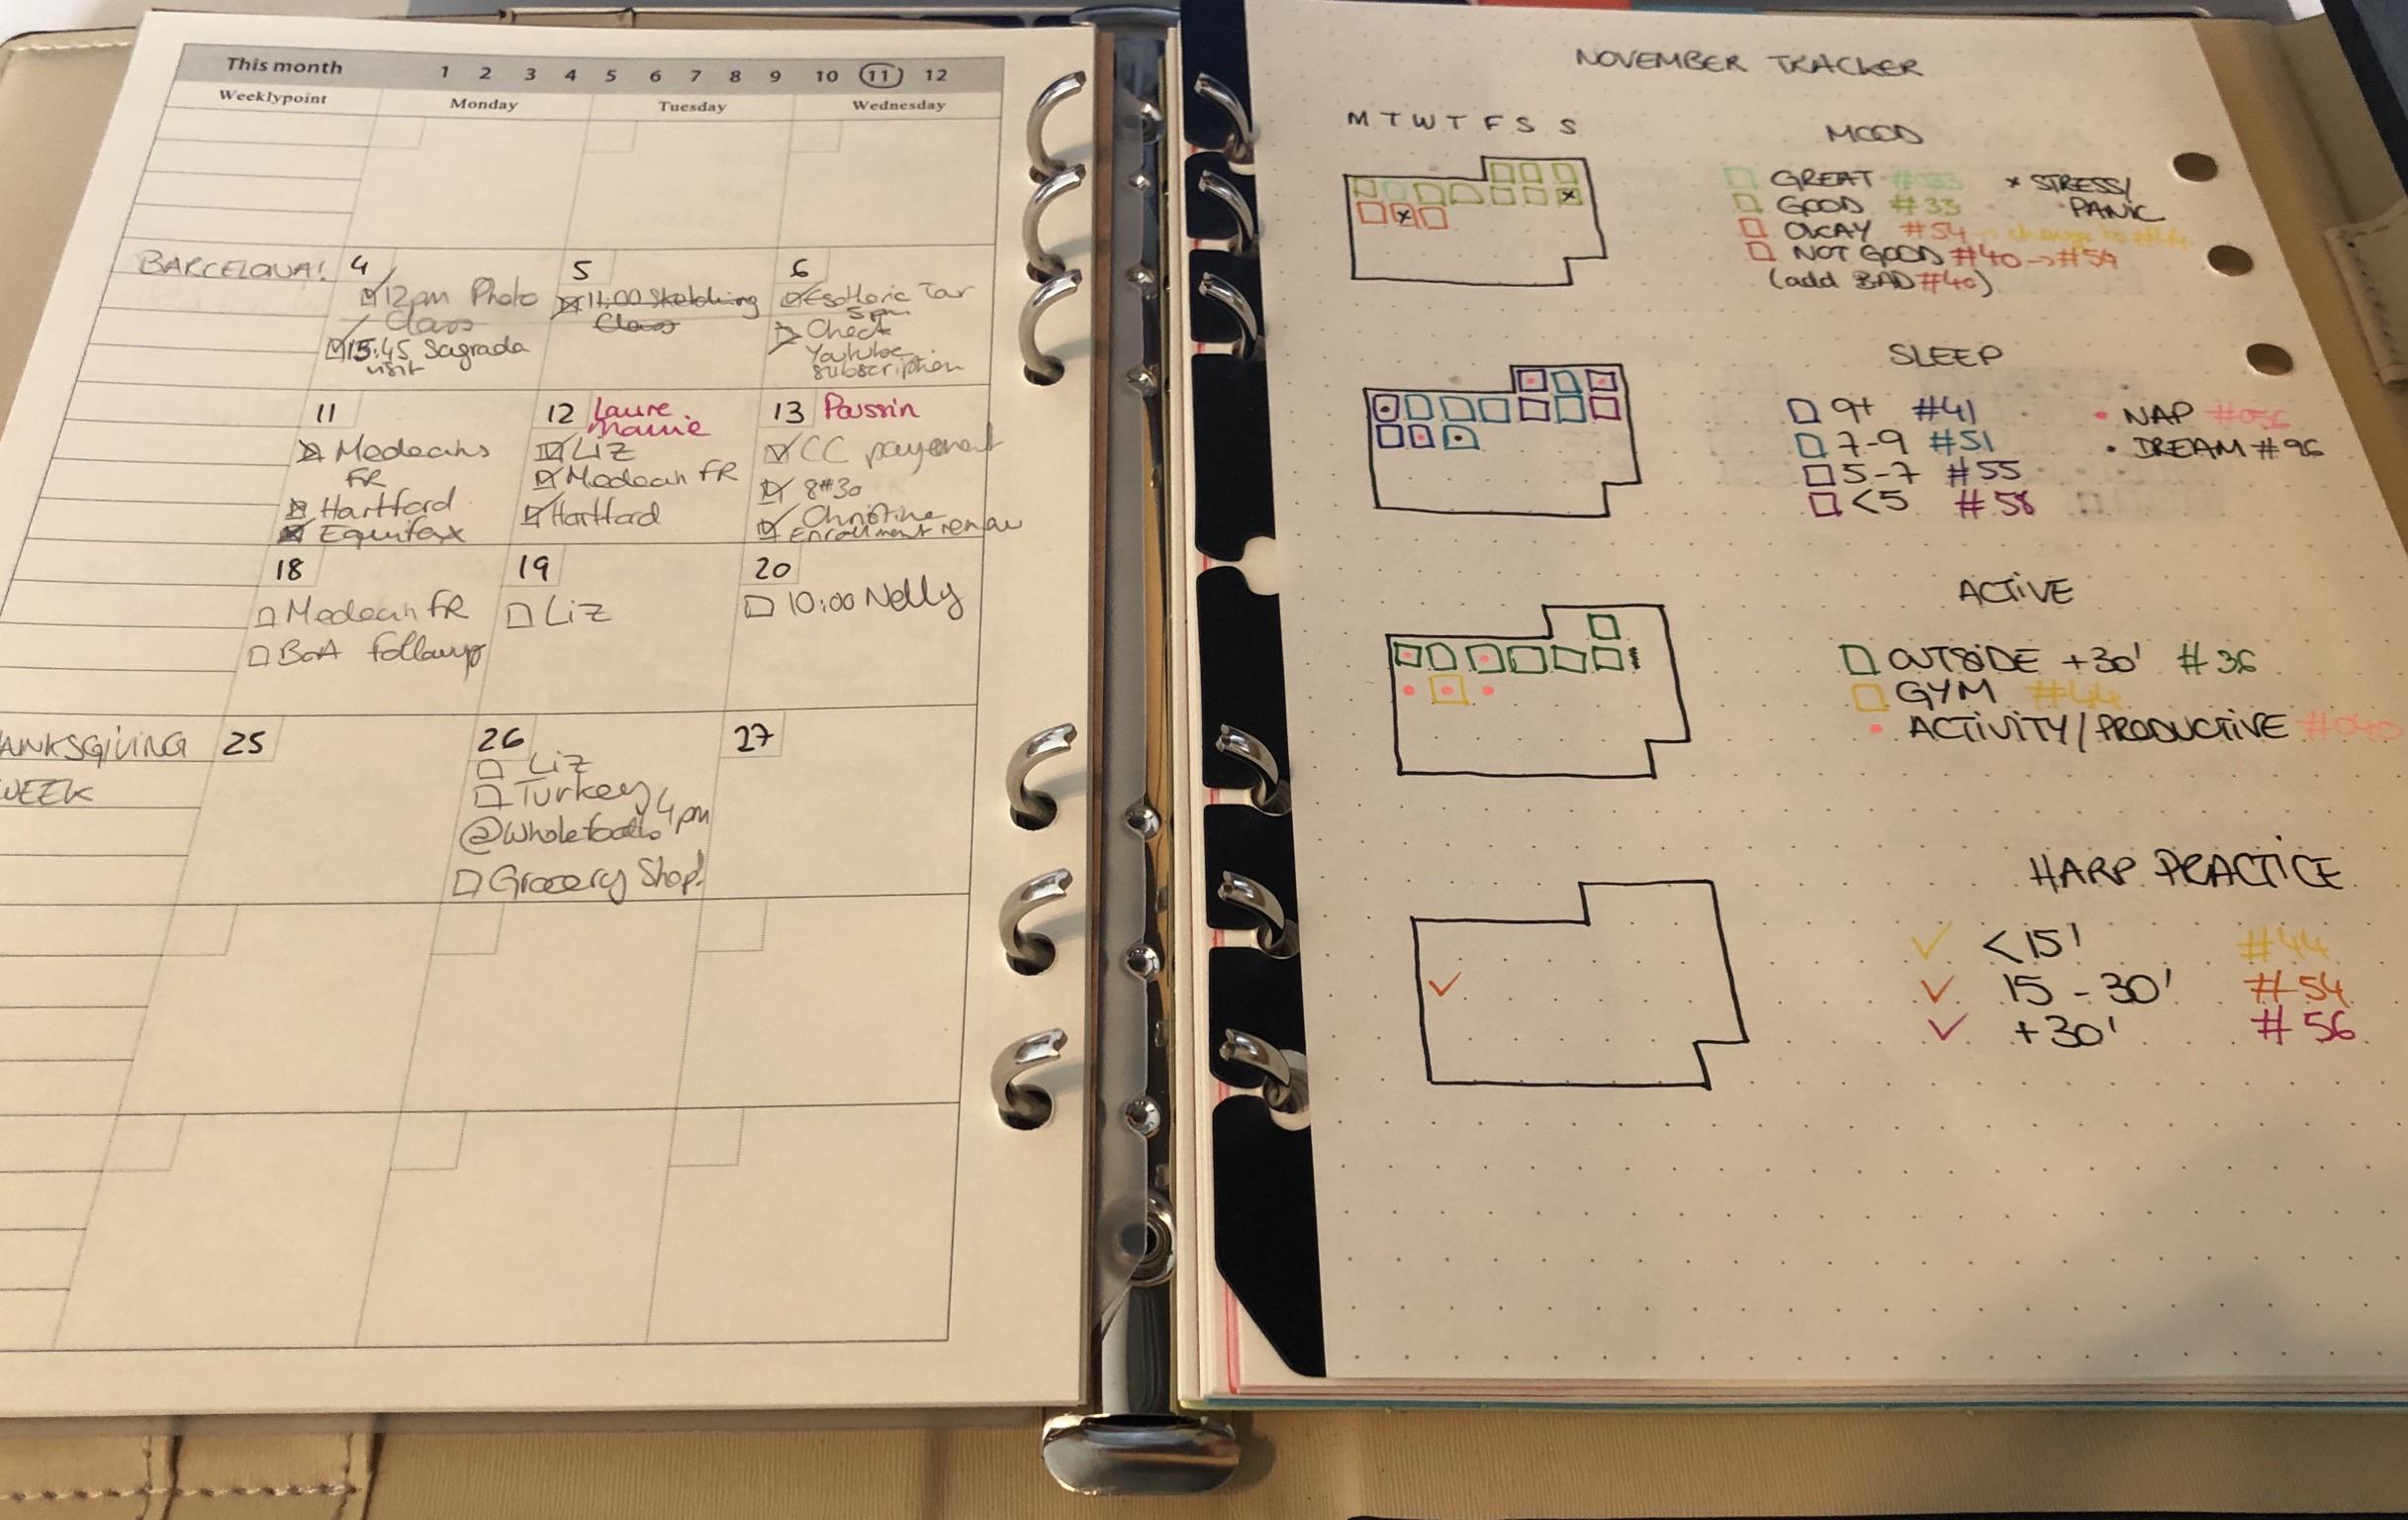 This month 1 2 3 4 5 6 7 8 9 10 11 12
Weeklypoint Monday Tuesday Wednesday
BARCELONA!
4
12pm Photo
Class
15:45 Sagrada
visit
5
11:00 Sketching
Class
6
Esoteric Tour
5pm
Check
Youtube
subscription
11
FR
Hartford
Equifax
12 Laure
Mamie
Liz
FR
Hartford
13 Poussin
CC payement
8#30
Christine
Enrollment
18
FR
BoA followup
19
Liz
20
10:00 Nelly
ANKSGIVING
WEEK
25
26
Liz
Turkey
@Wholefoods 4pm
Grocery Shop!
27
NOVEMBER TRACKER
M T W T F S S
MOOD
GREAT
GOOD #33
OKAY #54
NOT GOOD #40 -> #54
(add BAD #40)
x STRESS/
PANIC
SLEEP
9+ #41
7-9 #51
5-7 #55
<5 #58
• NAP
• DREAM #96
ACTIVE
OUTSIDE +30' #36
GYM #44
• ACTIVITY/PRODUCTIVE
HARP PRACTICE
✓ <15' #44
✓ 15-30' #54
✓ +30' #56